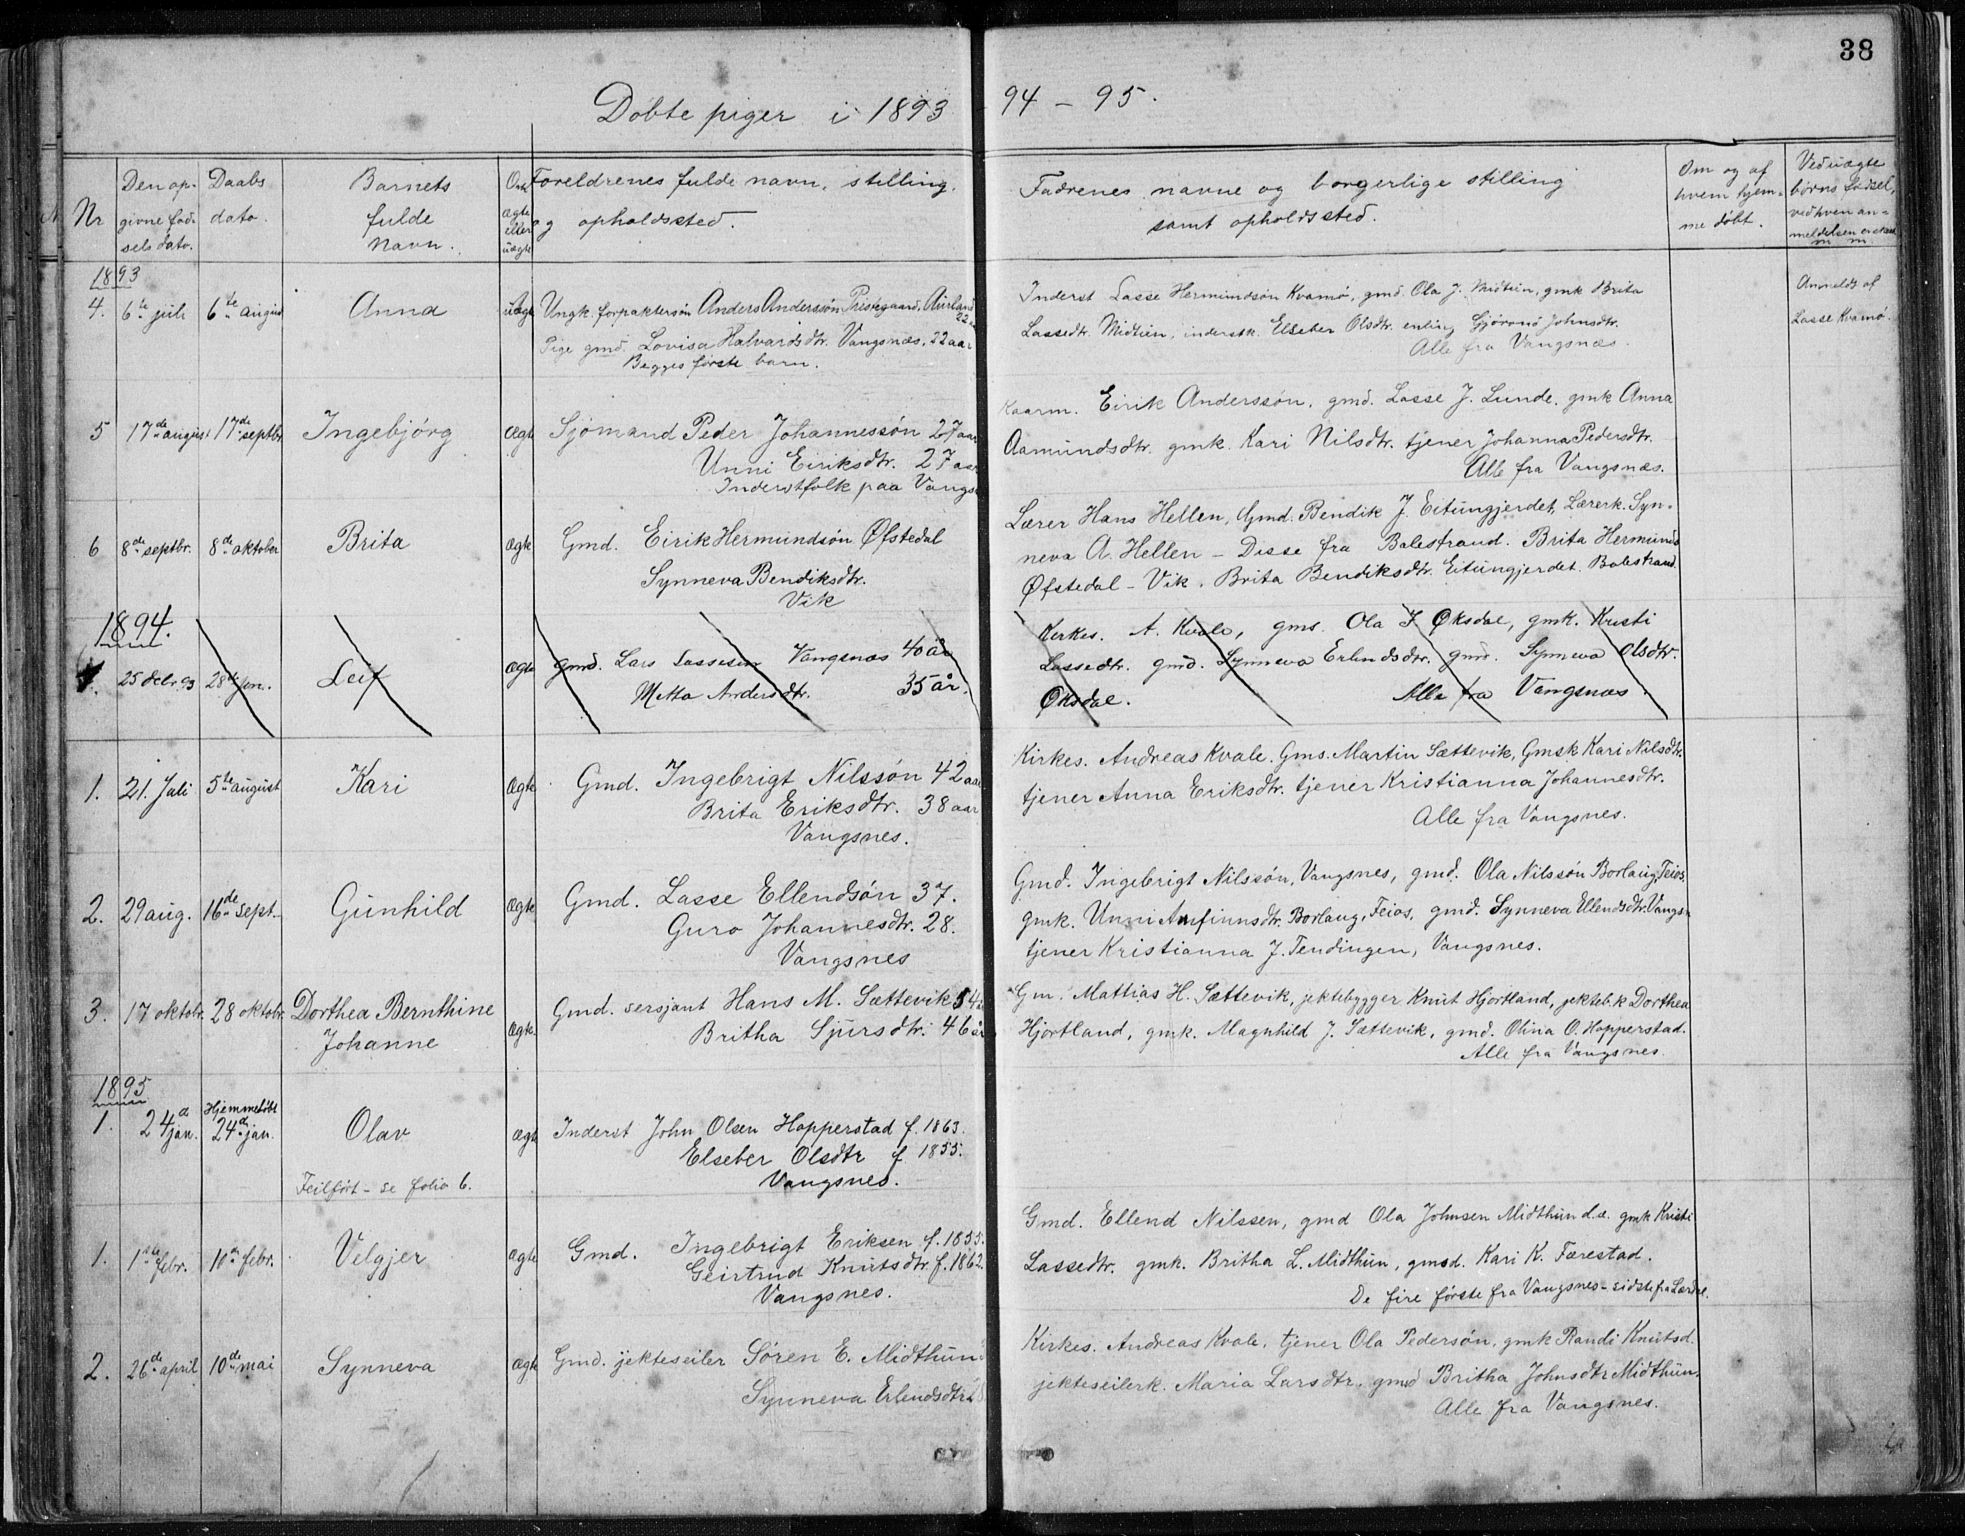 38
Døbte piger i 1893 94 - 95.
Nr
Den op-
givne fød-
sels dato.
Daabs
dato.
Barnets
fulde
Navn.
Om
ægte
eller
uægte
Foreldrenes fulde navn, stilling,
og opholdssted.
Fadrenes navne og borgerlige stilling
samt opholdssted.
Om og af
hvem hjem-
me døbt.
Ved uægte
børns fødsel,
ved hvem an-
meldelsen er skeed
m m.
1893
4. 6te juli 6te august Anna uægte Ungk. forpaktersøn Anders Anderssøn Prestegaard, Aurland
22 aar
Pige gmd. Lovisa Halvardsdtr. Vangsnæs, 22 aar
Begges første barn.
Inderst Lasse Hermundsøn Kvamø, gmd. Ola J. Midtun, gmk Brita
Lassedtr. Midtun, inderstk. Elseber Olsdtr. enling Gjørond Johnsdtr.
Alle fra Vangsnæs.
Anmeldt af
Lasse Kvamø.
5 17de august 17de septbr Ingebjørg Ægte Sjømand Peder Johannessøn 27 aar
Unni Eiriksdtr. 27 aar
Inderstfolk paa Vangs
Kaarm. Eirik Anderssøn, gmd. Lasse J. Lunde, gmk Anna
Aamundsdtr. gmk. Kari Nilsdtr. tjener Johanna Pedersdtr.
Alle fra Vangsnæs.
6 8de septbr. 8de oktober Brita Ægte Gmd. Eirik Hermundsøn Øfstedal
Synneva Bendiksdtr.
Vik
Lærer Hans Hellen, Gmd. Bendik J. Eitungjerdet, Lærerk. Syn-
neva A. Hellen - Disse fra Balestrand. Brita Hermunds
Øfstedal - Vik. Brita Bendiksdtr. Eitungjerdet. Balestrand.
1894.
25 debr. 93 28de jan. Leif Ægte gmd. Lars Lassesen Vangsnæs 40 år
Metta Andersdtr. 35 år.
Kirkes. A. Kvale, gms. Ola J. Øksdal, gmk. Kristi
Lassedtr. gmd. Synneva Erlendsdtr. gmd. Synneva Olsdtr.
Øksdal. Alle fra Vangsnæs.
1. 21. Juli 5te august Kari Ægte Gmd. Ingebrigt Nilssøn 42 aar
Brita Eriksdtr. 38 aar
Vangsnes.
Kirkes. Andreas Kvale. Gms. Martin Sættevik, Gmsk Kari Nilsdtr.
tjener Anna Eriksdtr. tjener Kristianna Johannesdtr.
Alle fra Vangsnes.
2. 29 aug. 16de sept. Gunhild Ægte Gmd. Lasse Ellendsøn 37.
Guro Johannesdtr. 28.
Vangsnes
Gmd. Ingebrigt Nilssøn, Vangsnes, gmd. Ola Nilssøn Borlaug, Feios,
gmk. Unni Anfinnsdtr. Borlaug, Feios, gmd. Synneva Ellendsdtr. Vangs-
tjener Kristianna J. Tendingen, Vangsnes.
3. 17 oktobr. 28 oktobr. Dorthea Bernthine
Johanne
Ægte. Gmd. sersjant Hans M. Sættevik 54
Britha Sjursdtr. 46 år
Gm. Mattias H. Sættevik, jektebygger Knut Hjortland, jekteb.k Dorthea
Hjortland, gmk. Magnhild J. Sættevik, gmd. Olina O. Hopperstad.
Alle fra Vangsnes.
1895
1. 24d jan. Hjemmedøbt
24d jan. Olav Ægte Inderst John Olsen Hopperstad f. 1863.
Elseber Olsdtr f. 1855.
Vangsnes.
Feilført - se folio 6.
1. 1ste febr. 10de febr. Velgjer Ægte Gmd. Ingebrigt Eriksen f. 1855.
Geirtrud Knutsdtr. f. 1862.
Vangsnes.
Gmd. Ellend Nilssen, gmd Ola Johnsen Midthun d.æ. gmk Kristi
Lassedtr. gmk. Britha L. Midthun, gmsd. Kari K. Færestad.
De fire første fra Vangsnes - sidste fra Lærdal.
2. 26de april 10de mai Synneva Ægte Gmd. jekteseiler Søren E. Midthun
Synneva Erlendsdtr
Kirkes. Andreas Kvale, tjener Ola Pedersøn, gmk Randi Knutsd.
jekteseilerk. Maria Larsdtr. gmd Britha Johnsdtr Midthun.
Alle fra Vangsnes.